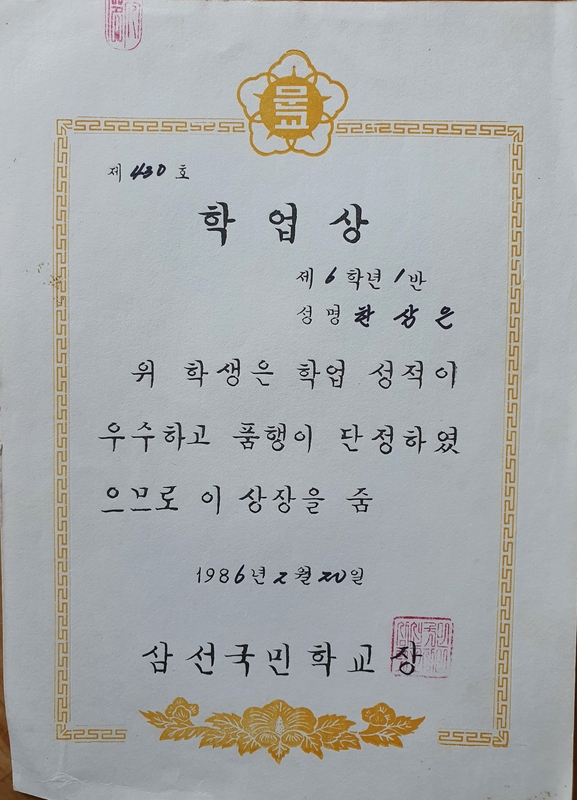 문교
제 430 호
학업상
제 6 학년 1 반
성명 한상은
위 학생은 학업 성적이
우수하고 품행이 단정하였
으므로 이 상장을 줌
1986년 2월 20일
삼선국민학교장